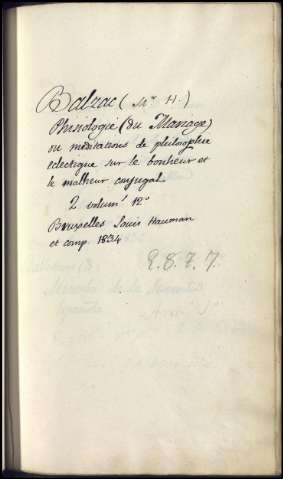 Balzac (Mr H.)
Phisiologie (du Mariage)
ou méditations de philosophie
eclectique sur le bonheur et
le malheur conjugal.
2 volum' 12º
Bruxelles Louis Hauman
et comp. 1834
2.8.7.7.